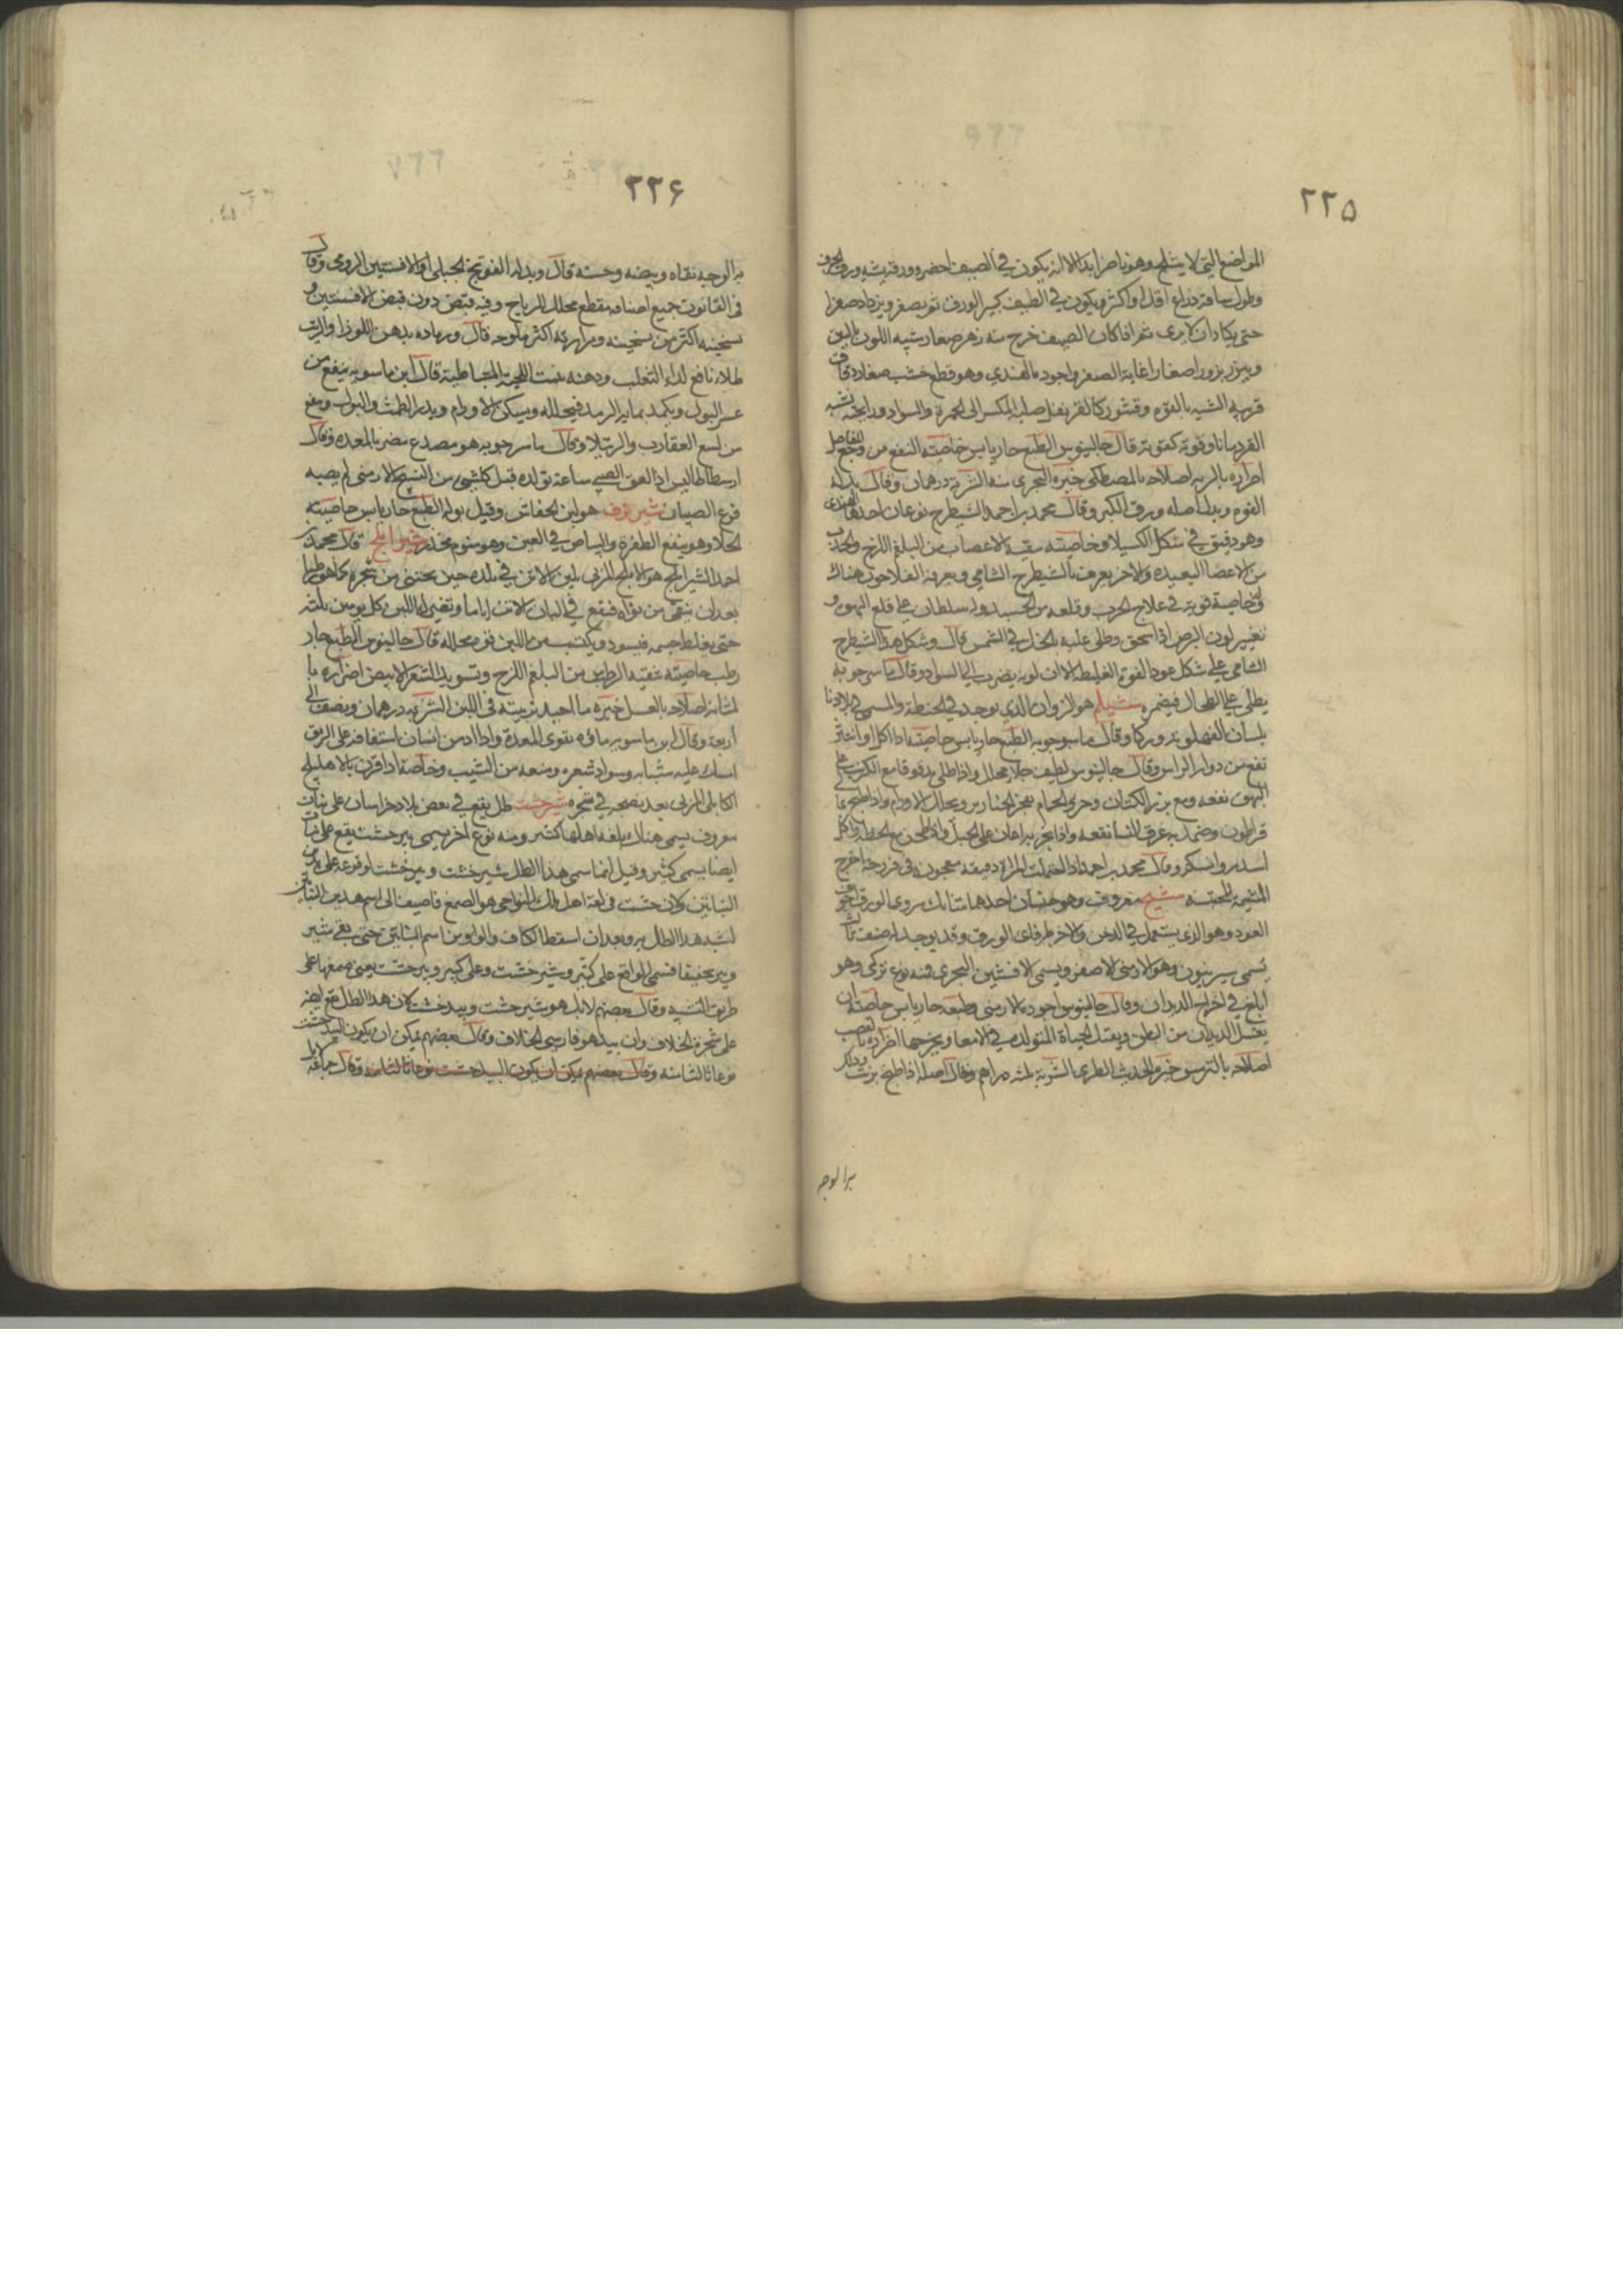 ٢٢٥
المواضع التي لا يثلج وهو ناضر ابدا الا انه يكون في الصيف اخضر وورقه يشبه ورق الحرف
وطول ساقه ذراع اقل او اكثر ويكون في الصيف كبير الورق ثم يصغر ويزداد صغرا
حتى يكاد ان لا يرى ثم اذا كان الصيف خرج منه زهر صغار شبيه اللون باللبن
ويبزر بزورا صغارا غاية الصغر واجوده الهندي وهو قطع خشب صغار دقاق
قريبة الشبه بالفوه وقشور كالقرنفل صلب المكسر الى الحمرة والسواد ورايحته تشبه
القردمانا وقوته كقوته قال جالينوس الطبع حار يابس خاصيته النفع من وجع المفاصل
اضراره بالريه اصلاحه بالمصطكى خيره البحري منه الشربة درهمان وقال بدله
الفوه وبدل اصله ورق الكبر وقال محمد بن احمد الشيطرج نوعان احدهما الهندى
وهو دقيق في شكل الكسيلا وخاصيته تنقية الاعصاب من البلغم اللزج والجذب
من الاعضا البعيده والاخر يعرف بالشيطرج الشامي ويعرفه الفلاحون هناك
وله خاصية قوية في علاج الجرب وقلعه من الجسد وله سلطان على قلع البهق و
تغيير لون البرص اذا سحق وطلى عليه بالخل في الشمس قال وشكل هذا الشيطرج
الشامى على شكل عود الفوة الغليظة الا ان لونه يضرب الى السواد وقال ماسرجويه
يطلى على الطحال فيضمره شيلم هو الزوان الذي يوجد في الحنطة والمسمى في بلادنا
بلسان وقال ماسرجويه الطبع حار يابس خاصيته اذا اكل او
نفع من دوار الراس وقال جالينوس لطيف جلا محلل واذا طلى بدقوقا مع الكبريت على
البهق نفعه ومع بزر الكتان وخرو الحمام يفجر الخنازير ويحلل الاورام واذا طبخ بما
قراطون وضمد به عرق النسا نفعه واذا بخر به اعان على الحبل واذا طحن مع الحنطة واكل
اسدر واسكر وقال محمد بن احمد اذا احتملت المراة دقيقه معجون في فرزجة اخرج
المشيمة المحتبسة شيح معروف وهو جنسان احدهما متشابك سروى الورق اجوف
العود وهو الذي يستعمل في الدخن والاخر طرفاى الورق وقد يوجد له صنف ثالث
يسمى سريفون وهو الارمنى الاصفر ويسمى الافسنتين البحري فمنه نوع تركى وهو
ابلغ في اخراج الديدان وقال جالينوس اجوده الارمنى وطبعه حار يابس خاصته ان
يقتل الديدان من البطن ويقتل الحياة المتولدة في الامعا ويخرجها اضراره بالعصب
اصلاحه بالترمس خيره الحديث الطرى الشربة ثلثه دراهم وقال اصله اذا طبخ بزيت ودلك
به الوجه
٢٢٦
به الوجه نقاه وبيضه وحسنه قال وبدله الفوتنج الجبلى او الافسنتين الرومى وقال
فى القانون جميع اصنافه مقطع محلل للرياح وفيه قبض دون قبض الافسنتين و
تسخينه اكثر من تسخينه ومرارته اكثر ملوحه قال ورماده بدهن اللوز او الزيت
طلا نافع لداء الثعلب ودهنه ينبت اللحية المتباطئة قال ابن ماسويه ينفع من
عسر البول ويكمد بمايه الرمد فيحلله ويسكن الاورام ويدر الطمث والبول وينفع
من لسع العقارب والرتيلا وقال ماسرجويه هو مصدع مضر بالمعده وقال
ارسطاطاليس اذا لعق الصبي ساعة تولده قبل كل شئ من الشيح الارمنى لم يصبه
فزع الصبيان شيرزق هو لبن الخفاش وقيل بوله الطبع حار يابس خاصيته
الجلا وهو ينفع الظفرة والبياض في العين وهو منوم مخدر شيراملج قال محمد بن
احمد الشيراملج هو الاملج المربى بلبن الاتن في بلده حين يجتنى من شجره كما هو رطبا
بعد ان ينقى من نواه فينقع في البان الاتن اياما وتغير له اللبن كل يومين ثلثه
حتى يغلظ جسمه فيسود ويكتسب من اللبن قوه محلله قال جالينوس الطبع حار
رطب خاصيته تنقية الراس من البلغم اللزج وتسويد الشعر الابيض اضراره با
لمثانه اصلاحه بالعسل خيره ما اجيد تربيته فى اللبن الشربه درهمان ونصف الى
اربعة وقال ابن ماسويه ماؤه يقوى المعدة واذا ادمن انسان استفافه على الريق
امسك عليه شبابه وسواد شعره ومنعه من الشيب وخاصة اذا قرن بالاهليلج
الكابلى المربى بعد نضجه في شجره شيرخشت طل يقع في بعض بلاد خراسان على نبات
معروف يسمى هناك بلغة اهلها كشير ومنه نوع اخر يسمى بيرخشت يقع على نبات
ايضا يسمى كبير وقيل انما سمى هذا الطل شيرخشت وبيرخشت لوقوعه على هذين
النباتين وكان خشت فى لغة اهل تلك النواحى هو الصمغ فاضيف الى اسم هذين النباتين
لشبه هذا الطل به وبعد ان اسقطا الكاف والواو من اسم النباتين حتى بقي شير
وبير تخفيفا فسمى الواقع على كشير وشيرخشت وعلى كبير وبيرخشت يعنى صمغها على
طريق التشبيه وقال بعضهم لا بل هو شيرخشت وبيدخشت لان هذا الطل يقع ايضا
على شجرة الخلاف وان بيد هو فارسى الخلاف وقال بعضهم يمكن ان يكون البيدخشت
نوعا ثالثا منه وقال بعضهم يمكن ان يكون البيدخشت نوعا ثالثا منه وقال جماعة